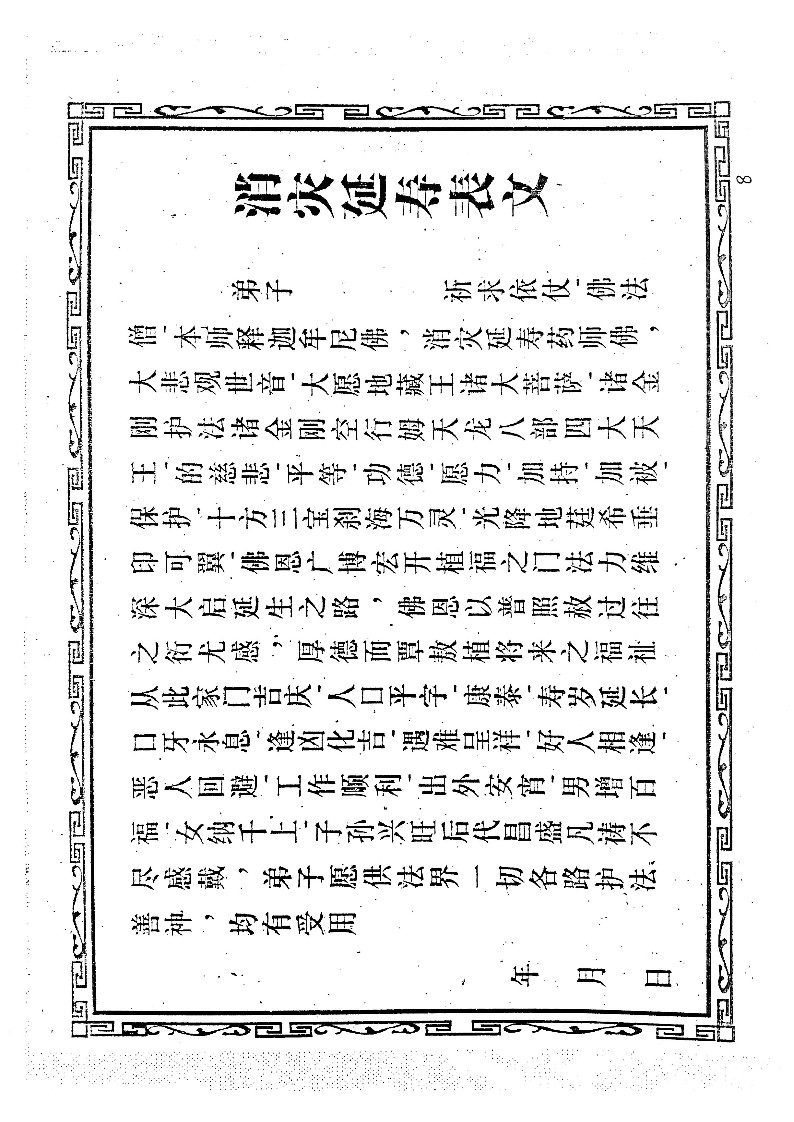 8
消灾延寿表文
弟子 祈求依仗、佛法
僧、本师释迦牟尼佛，消灾延寿药师佛，
大悲观世音、大愿地藏王诸大菩萨、诸金
刚护法诸金刚空行姆天龙八部四大天
王、的慈悲、平等、功德、愿力、加持、加被、
保护、十方三宝刹海万灵、光降地莛希垂
印可翼、佛恩广博宏开植福之门法力维
深大启延生之路，佛恩以普照赦过往
之衍尤感，厚德而覃敖植将来之福祉
从此家门吉庆、人口平字、康泰、寿岁延长、
口牙永息、逢凶化吉、遇难呈祥、好人相逢、
恶人回避、工作顺利、出外安宵、男增百
福、女纳千上、子孙兴旺后代昌盛凡祷不
尽感戴，弟子愿供法界一切各路护法、
善神，均有受用
年 月 日